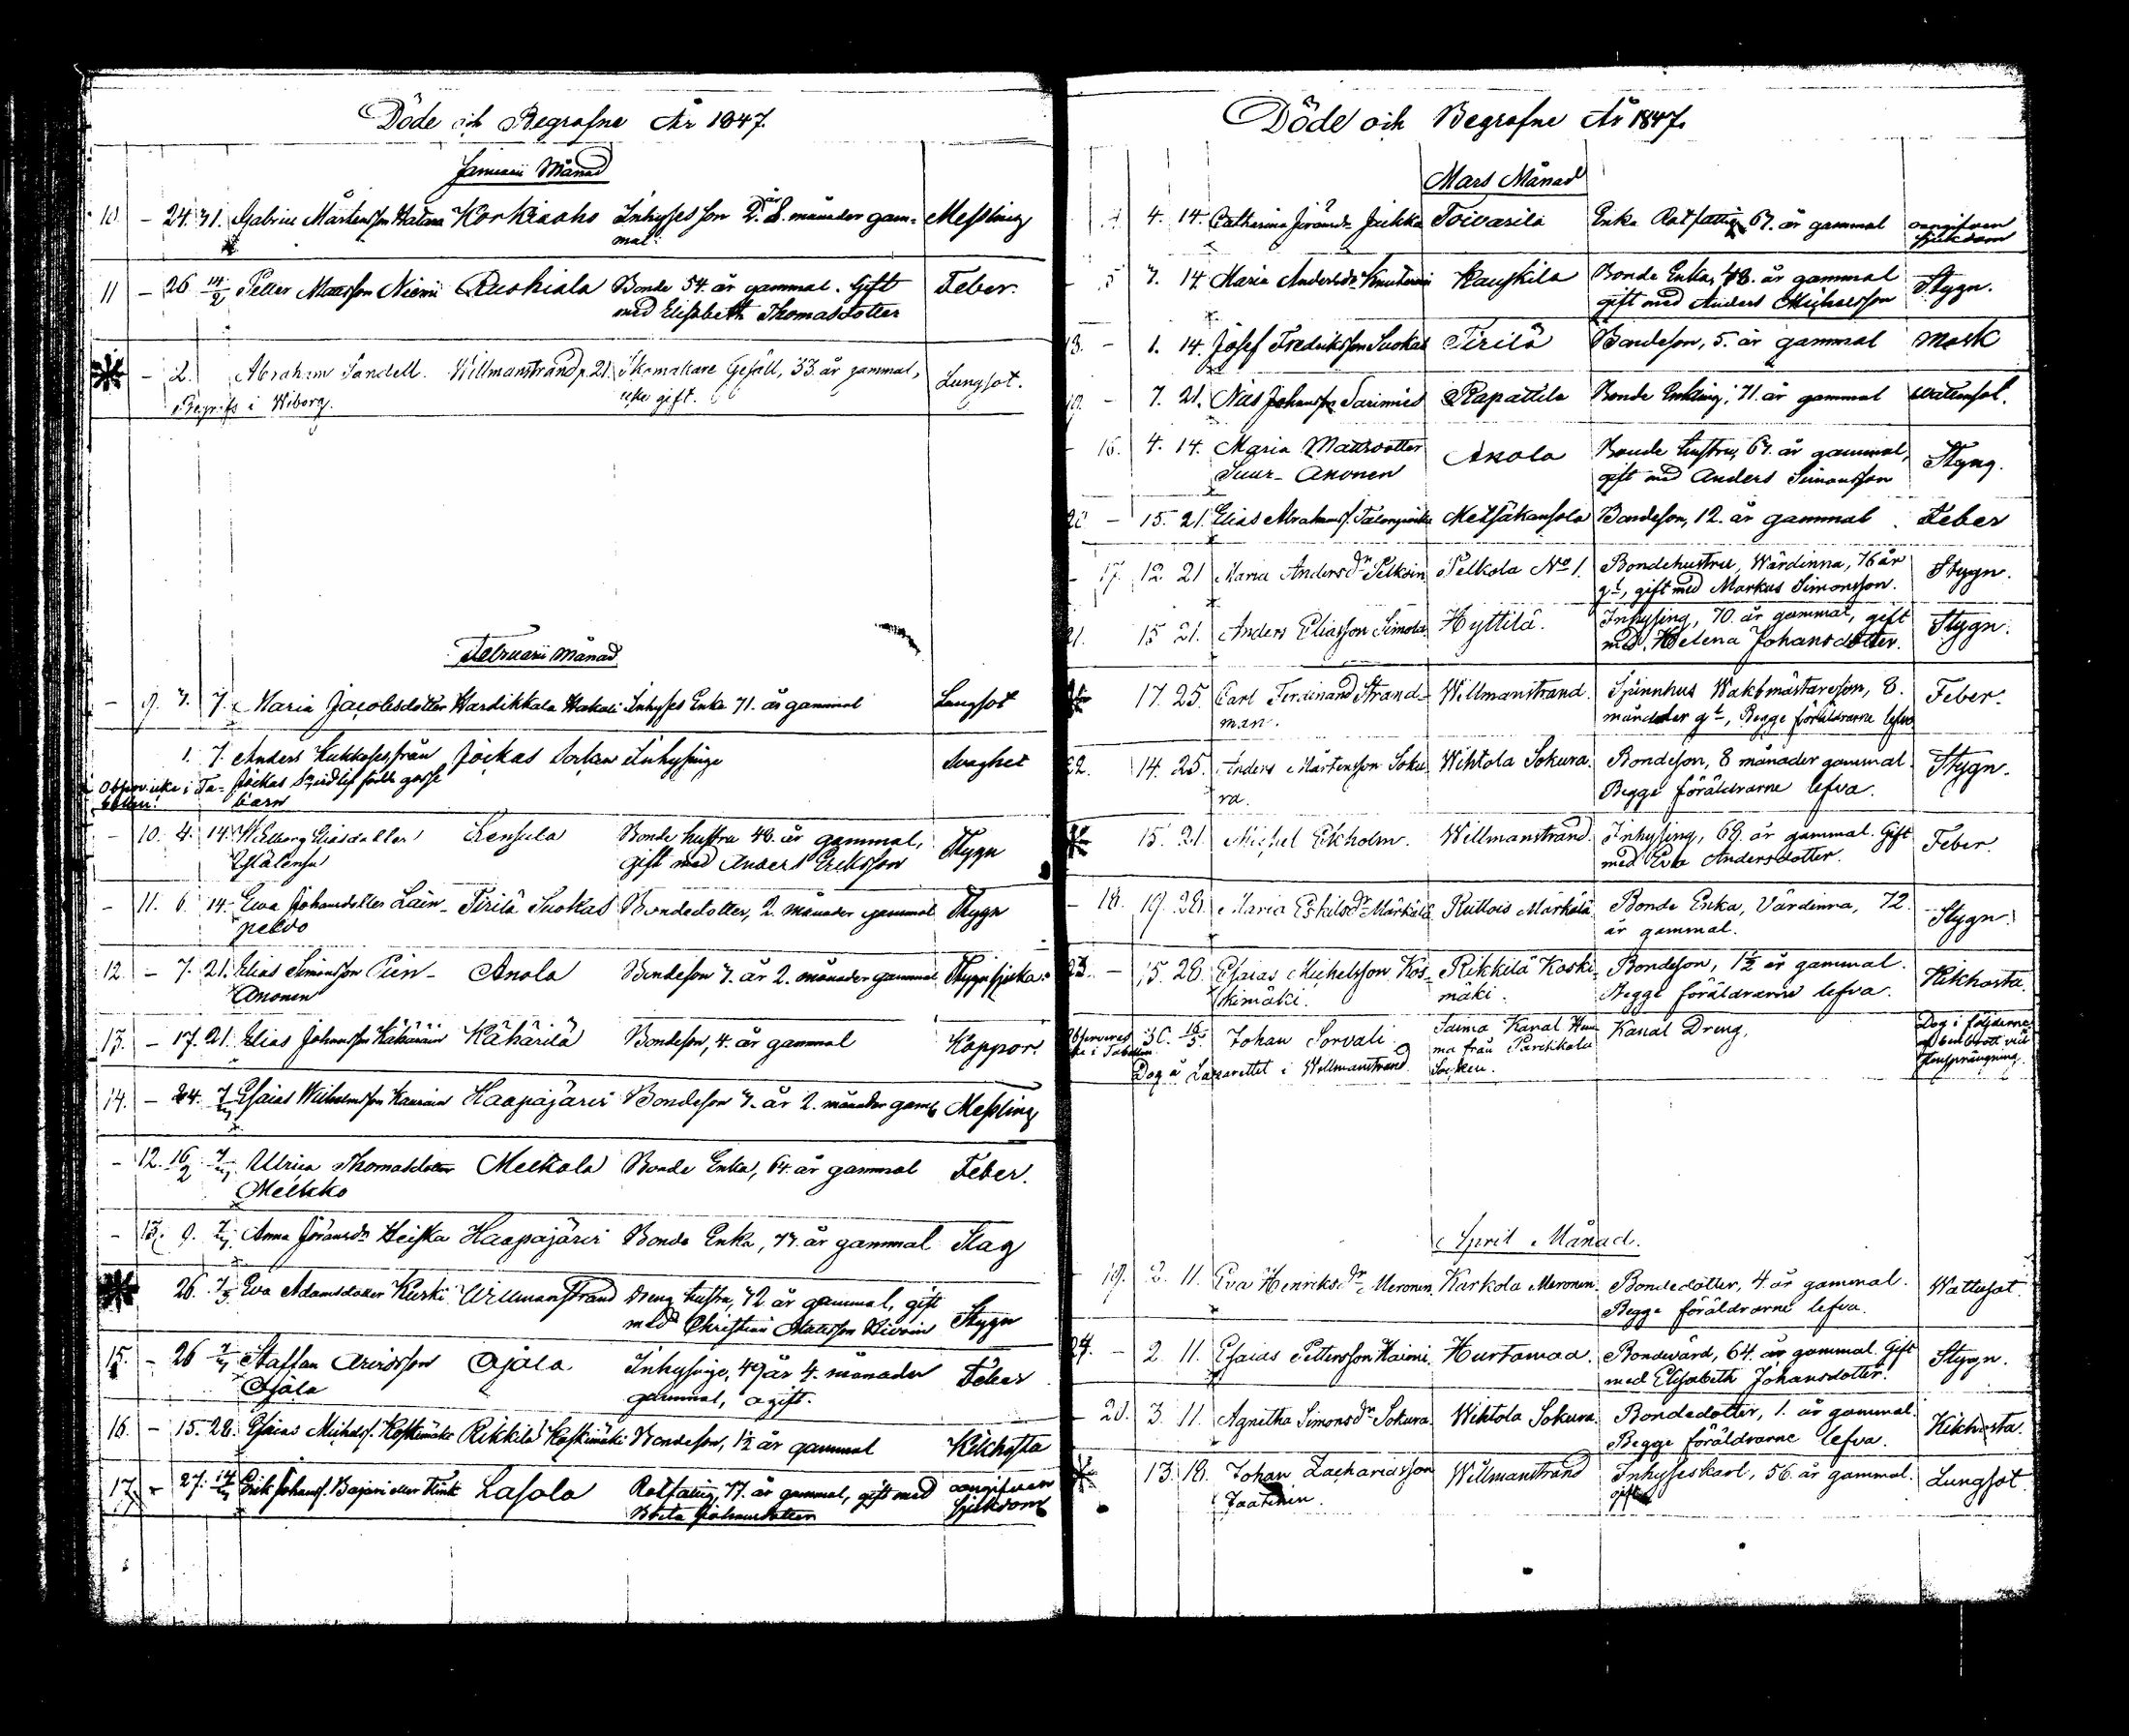 Döde och Begrafne År 1847.
Januarii Månad
10. - 24. 31. Gabriel Mårtensson Korkiaaho Inhyses son 2 år 8 månader gam- Messling
mal.
11 - 26 14/2 Petter Matsson Niemi Ruohiala Bonde 54 år gammal. Gift Feber.
med Elisabeth Thomasdotter
- 2. Abraham Sandell. Willmanstrand p. 21. Skomakare Gesäll, 33. år gammal, Lungsot.
Begrafs i Wiborg. icke gift.
Februarii Månad
- 9. 7. 7. Maria Jacobsdotter Hardikkala Inhyses Enka 71. år gammal Lungsot
1. 7. Anders från Jockas Socken Inhysinge Svaghet
Observ. icke i Ta- Jockas
bellen! barn
- 10. 4. 14. Eliasdotter Kensula Bonde hustru 48. år gammal, Stygn
gift med Anders Eriksson
- 11. 6. 14. Ewa Johansdotter Lain- Tirilä Suokas Bondedotter, 2. månader gammal Stygn
peldo
12. - 7. 21. Elias Simonsson Pien- Anola Bondeson 7. år 2. månader gammal
Anonen
13. - 17. 21. Elias Johansson Kähäräin Kähärilä Bondeson, 4. år gammal Koppor.
14. - 24. Esaias Wilhelmsson Haapajärvi Bondeson 7. år 2. månader gaml Messling
- 12. 16/2 Ulrica Thomasdotter Melkola Bonde Enka, 64. år gammal Feber.
Melkko
- 13. 9. Anna Jöransdr Heiska Haapajärvi Bonde Enka, 77. år gammal Slag
26. 7/3 Eva Adamsdotter Kurki Willmanstrand Dreng hustru, 72 år gammal, gift Stygn
med Christian Matsson
15. - 26 Staffan Arvidsson Ojala Inhysinge, 49 år 4. månader Feber
Ojala gammal, ogift.
16. - 15. 28. Esaias Michelss. Koskimäki Rikkilä Koskimäki Bondeson, 1½ år gammal Kikhosta
17. - 27. Erik Johanss. Bajari eller Flink Lasola Rotfattig, 77. år gammal, gift med oangifven
Beata Johansdotter sjukdom
Döde och Begrafne År 1847.
Mars Månad
4. 14. Catharina Jöransdr Jukka Toivarila Enka Rotfattig 67. år gammal oangifven
sjukdom
- 5 7. 14 Maria Andersdr Knuutinen Kauskila Bonde Enka, 78. år gammal Stygn.
gift med Anders Michelsson
18. - 1. 14. Josef Fredriksson Suokas Tirilä Bondeson, 5. år gammal Mask
19. - 7. 21. Nils Johansson Sarimies Rapattila Bonde Enkling, 71. år gammal Wattensot.
- 16. 4. 14. Maria Mattsdotter Anola Bonde hustru, 67. år gammal, Stygn.
Suur-Anonen gift med Anders Simonsson
20 - 15. 21. Elias Abrahamss. Metsäkansola Bondeson, 12. år gammal Feber
- 17. 12. 21 Maria Andersdr Pelkoin Pelkola No 1. Bondehustru, Wärdinna, 76 år Stygn.
gl, gift med Markus Simonsson.
21. 15 21. Anders Eliasson Simola Hyttilä. Inhysing, 70. år gammal, gift Stygn.
med Helena Johansdotter.
17. 25. Carl Ferdinand Strand- Willmanstrand. Spinnhus Waktmästareson, 8. Feber.
man. månader gl, Begge föräldrarne lefva
22. 14. 25. Anders Mårtensson Soku- Wihtola Sokura. Bondeson, 8 månader gammal Stygn.
ra. Begge föräldrarne lefva.
15. 21. Michel Ekholm. Willmanstrand. Inhysing, 69. år gammal. Gift Feber.
med Eva Andersdotter.
- 18. 19. 28. Maria Eskilsdr Märkälä Ruttois Märkälä Bonde Enka, Värdinna, 72. Stygn.
år gammal.
23. - 15. 28. Esaias Michelsson Kos- Rikkilä Koski- Bondeson, 1½ år gammal. Kikhosta.
kimäki. mäki. Begge föräldrarne lefva.
Observeras 30. 16/5. Johan Sorvali. Saima Kanal Kanal Dreng. Dog i följderne
i Tabellen från Parikkala af benbrott vid
Dog å Lazarettet i Willmanstrand Socken. stensprängning.
April Månad.
- 19. 2. 11. Eva Henriksdr Meronen. Karkola Meronen. Bondedotter, 4 år gammal. Wattusot.
Begge föräldrarne lefva.
24. - 2. 11. Esaias Pettersson Haimi. Hurtamaa. Bondevärd, 64. år gammal. Gift Stygn.
med Elisabeth Johansdotter.
- 20. 3. 11. Agnetha Simonsdr Sokura. Wihtola Sokura. Bondedotter, 1. år gammal. Kikhosta.
Begge föräldrarne lefva.
13. 18. Johan Zachariasson Willmanstrand Inhyseskarl, 56. år gammal. Lungsot
Jaatinen. gift